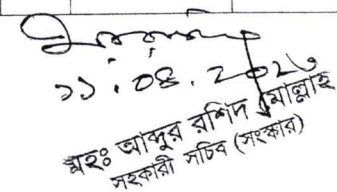 ১১.০৪.২০২৬
মহঃ আব্দুর রশিদ মোল্লাহ
সহকারী সচিব (সংস্কার)